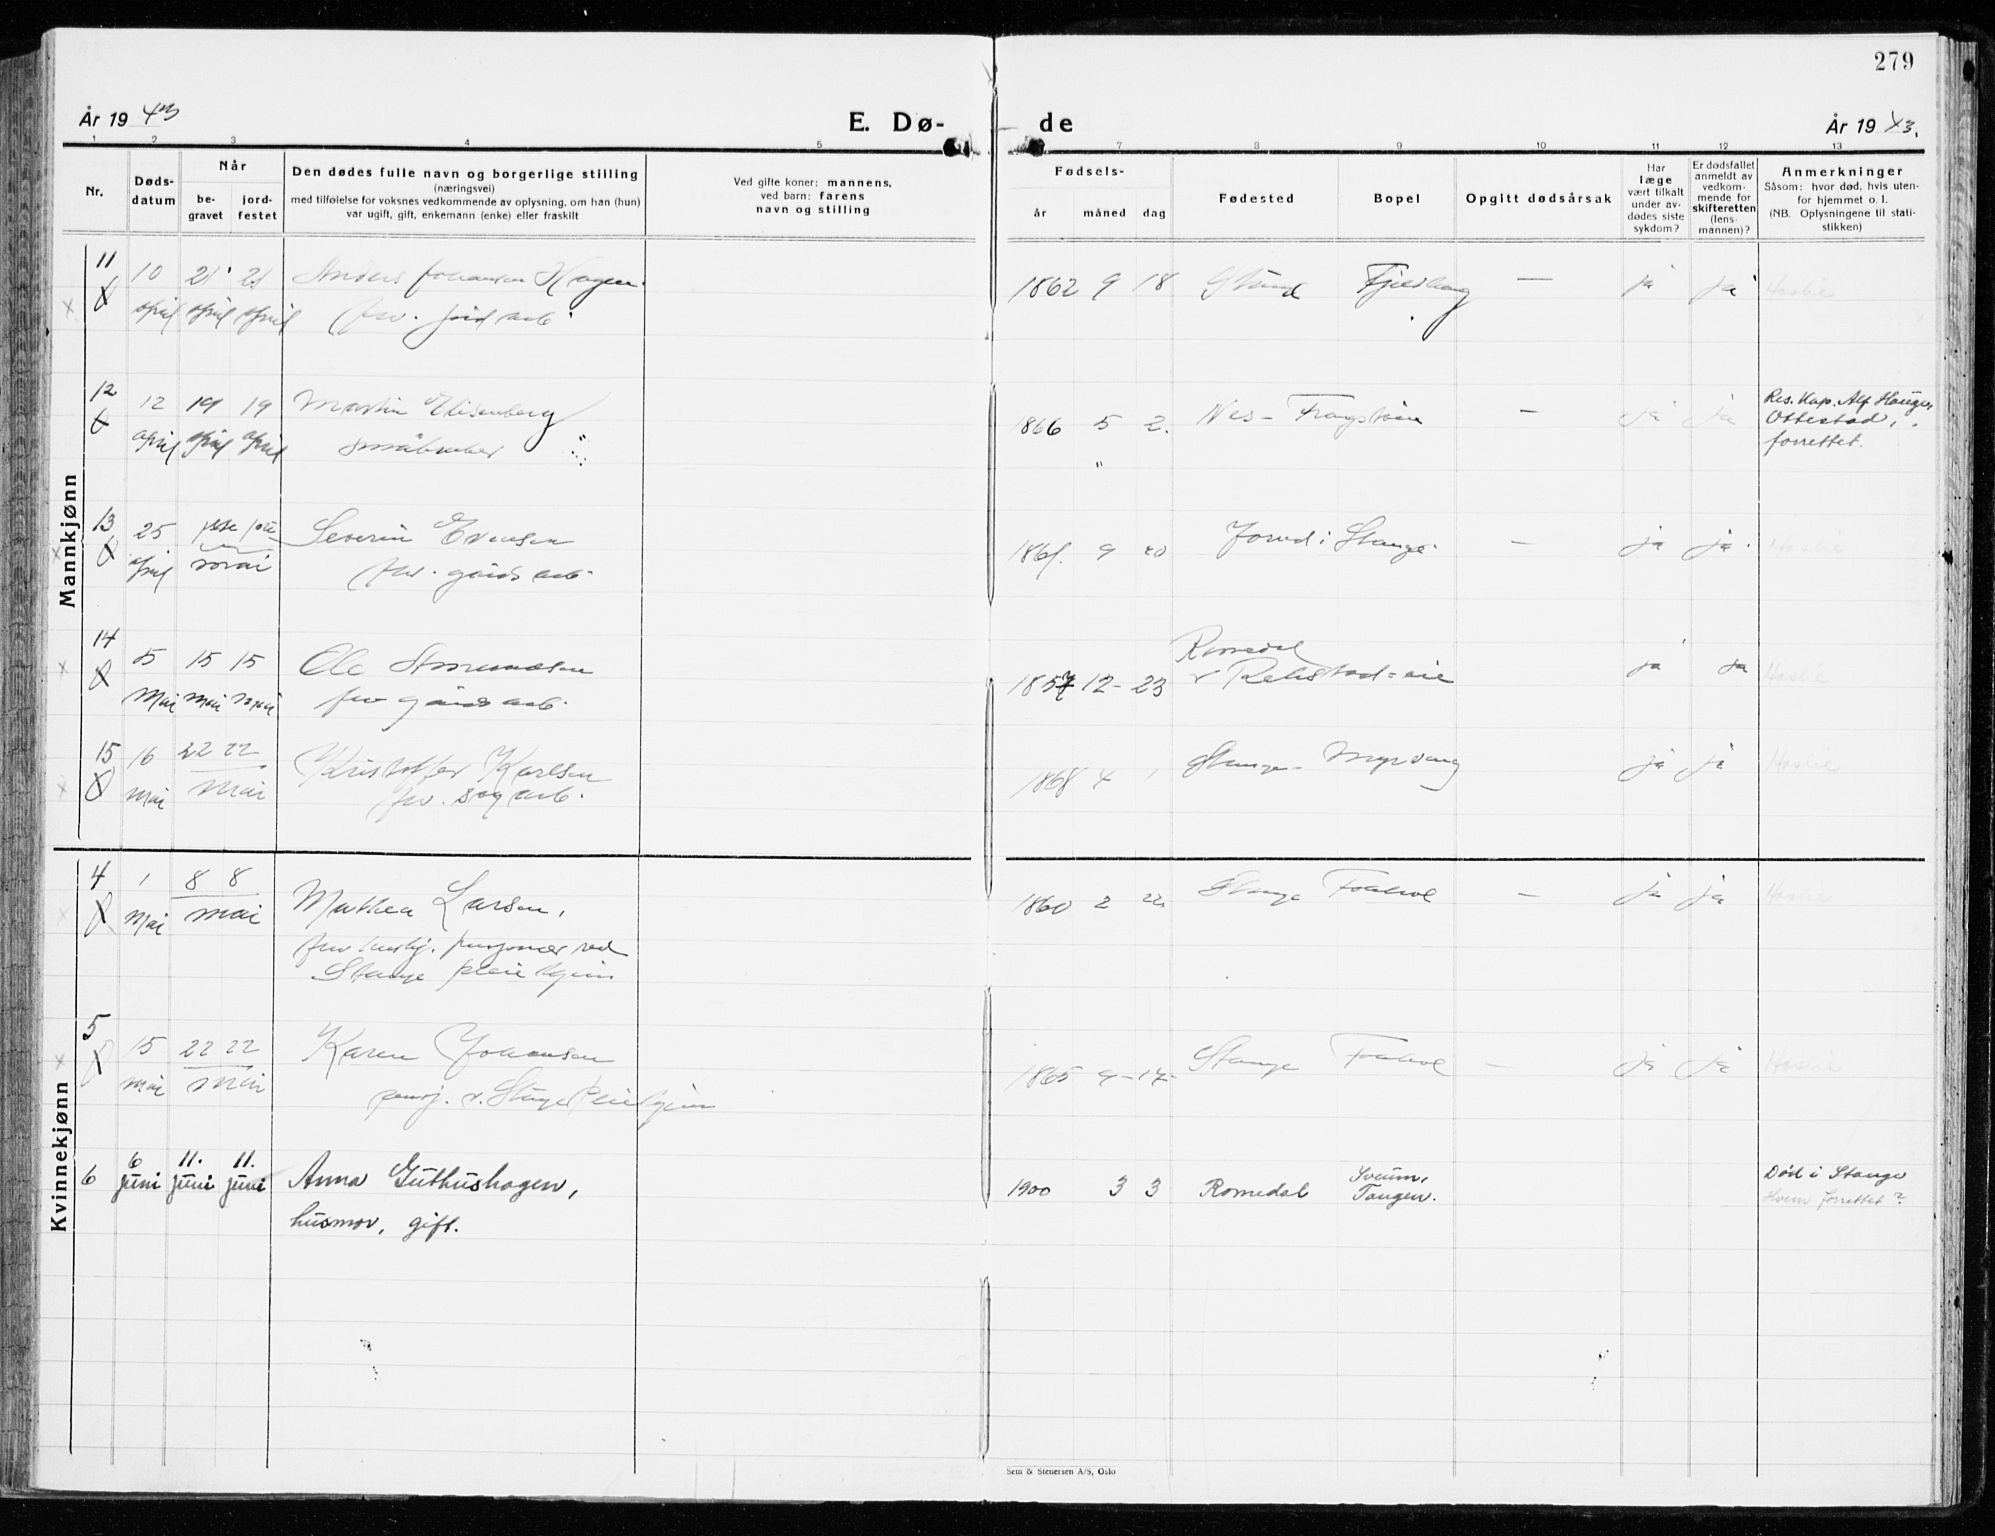 279
År 19 43
E. Dø-
de
År 19 43.
1 2 3 4 5 7 8 9 10 11 12 13
Nr.
Døds-
datum
Når
be-
gravet
jord-
festet
Den dødes fulle navn og borgerlige stilling
(næringsvei)
med tilføielse for voksnes vedkommende av oplysning, om han (hun)
var ugift, gift, enkemann (enke) eller fraskilt
Ved gifte koner: mannens,
ved barn: farens
navn og stilling
Fødsels-
år måned dag
Fødested
Bopel
Opgitt dødsårsak
Har
læge
vært tilkalt
under av-
dødes siste
sykdom?
Er dødsfallet
anmeldt av
vedkom-
mende for
skifteretten
(lens-
mannen)?
Anmerkninger
Såsom: hvor død, hvis uten-
for hjemmet o. l.
(NB. Oplysningene til stati-
stikken)
Mannkjønn
11
10 21 21 Anders Johansen Hagen
april april april fhv. jord arb.
1862 9 18 — ja ja Haslie
12
12 19 19 Martin Elisenberg
april april april småbruker
1866 5 2. Nes — ja ja
Res. Kap. Alf Hauge,
Ottestad,
forrettet.
13
25 Severin Evensen
april mai fhv. gårds arb.
9 20 i Stange — ja ja Haslie
14
15 15 Ole
Mai mai mai fhv gårds arb.
Romedal
1857 12 - 23 ja ja Haslie
15
16 22 22 Kristoffer Karlsen
mai mai fhv. sag arb.
1868 4 1 Stange Myrvang ja ja Haslie
Kvinnekjønn
4
1 8 8 Mathea Larsen,
Mai mai fhv hushj. pensjonær ved
Stange pleiehjem
1860 2 22 Stange — ja ja Haslie
5
15 22 22 Karen Johansen
mai mai pensj. v. Stange Pleiehjem
1865 9 - 17 - Stange — ja ja Haslie
6
6 11. 11.
juni juni juni Anna Guthushagen,
husmor, gift.
1900 3 3 Romedal Sveum,
Tangen.
Død i Stange
Hvem forrettet?
Sem & Stenersen A/S, Oslo